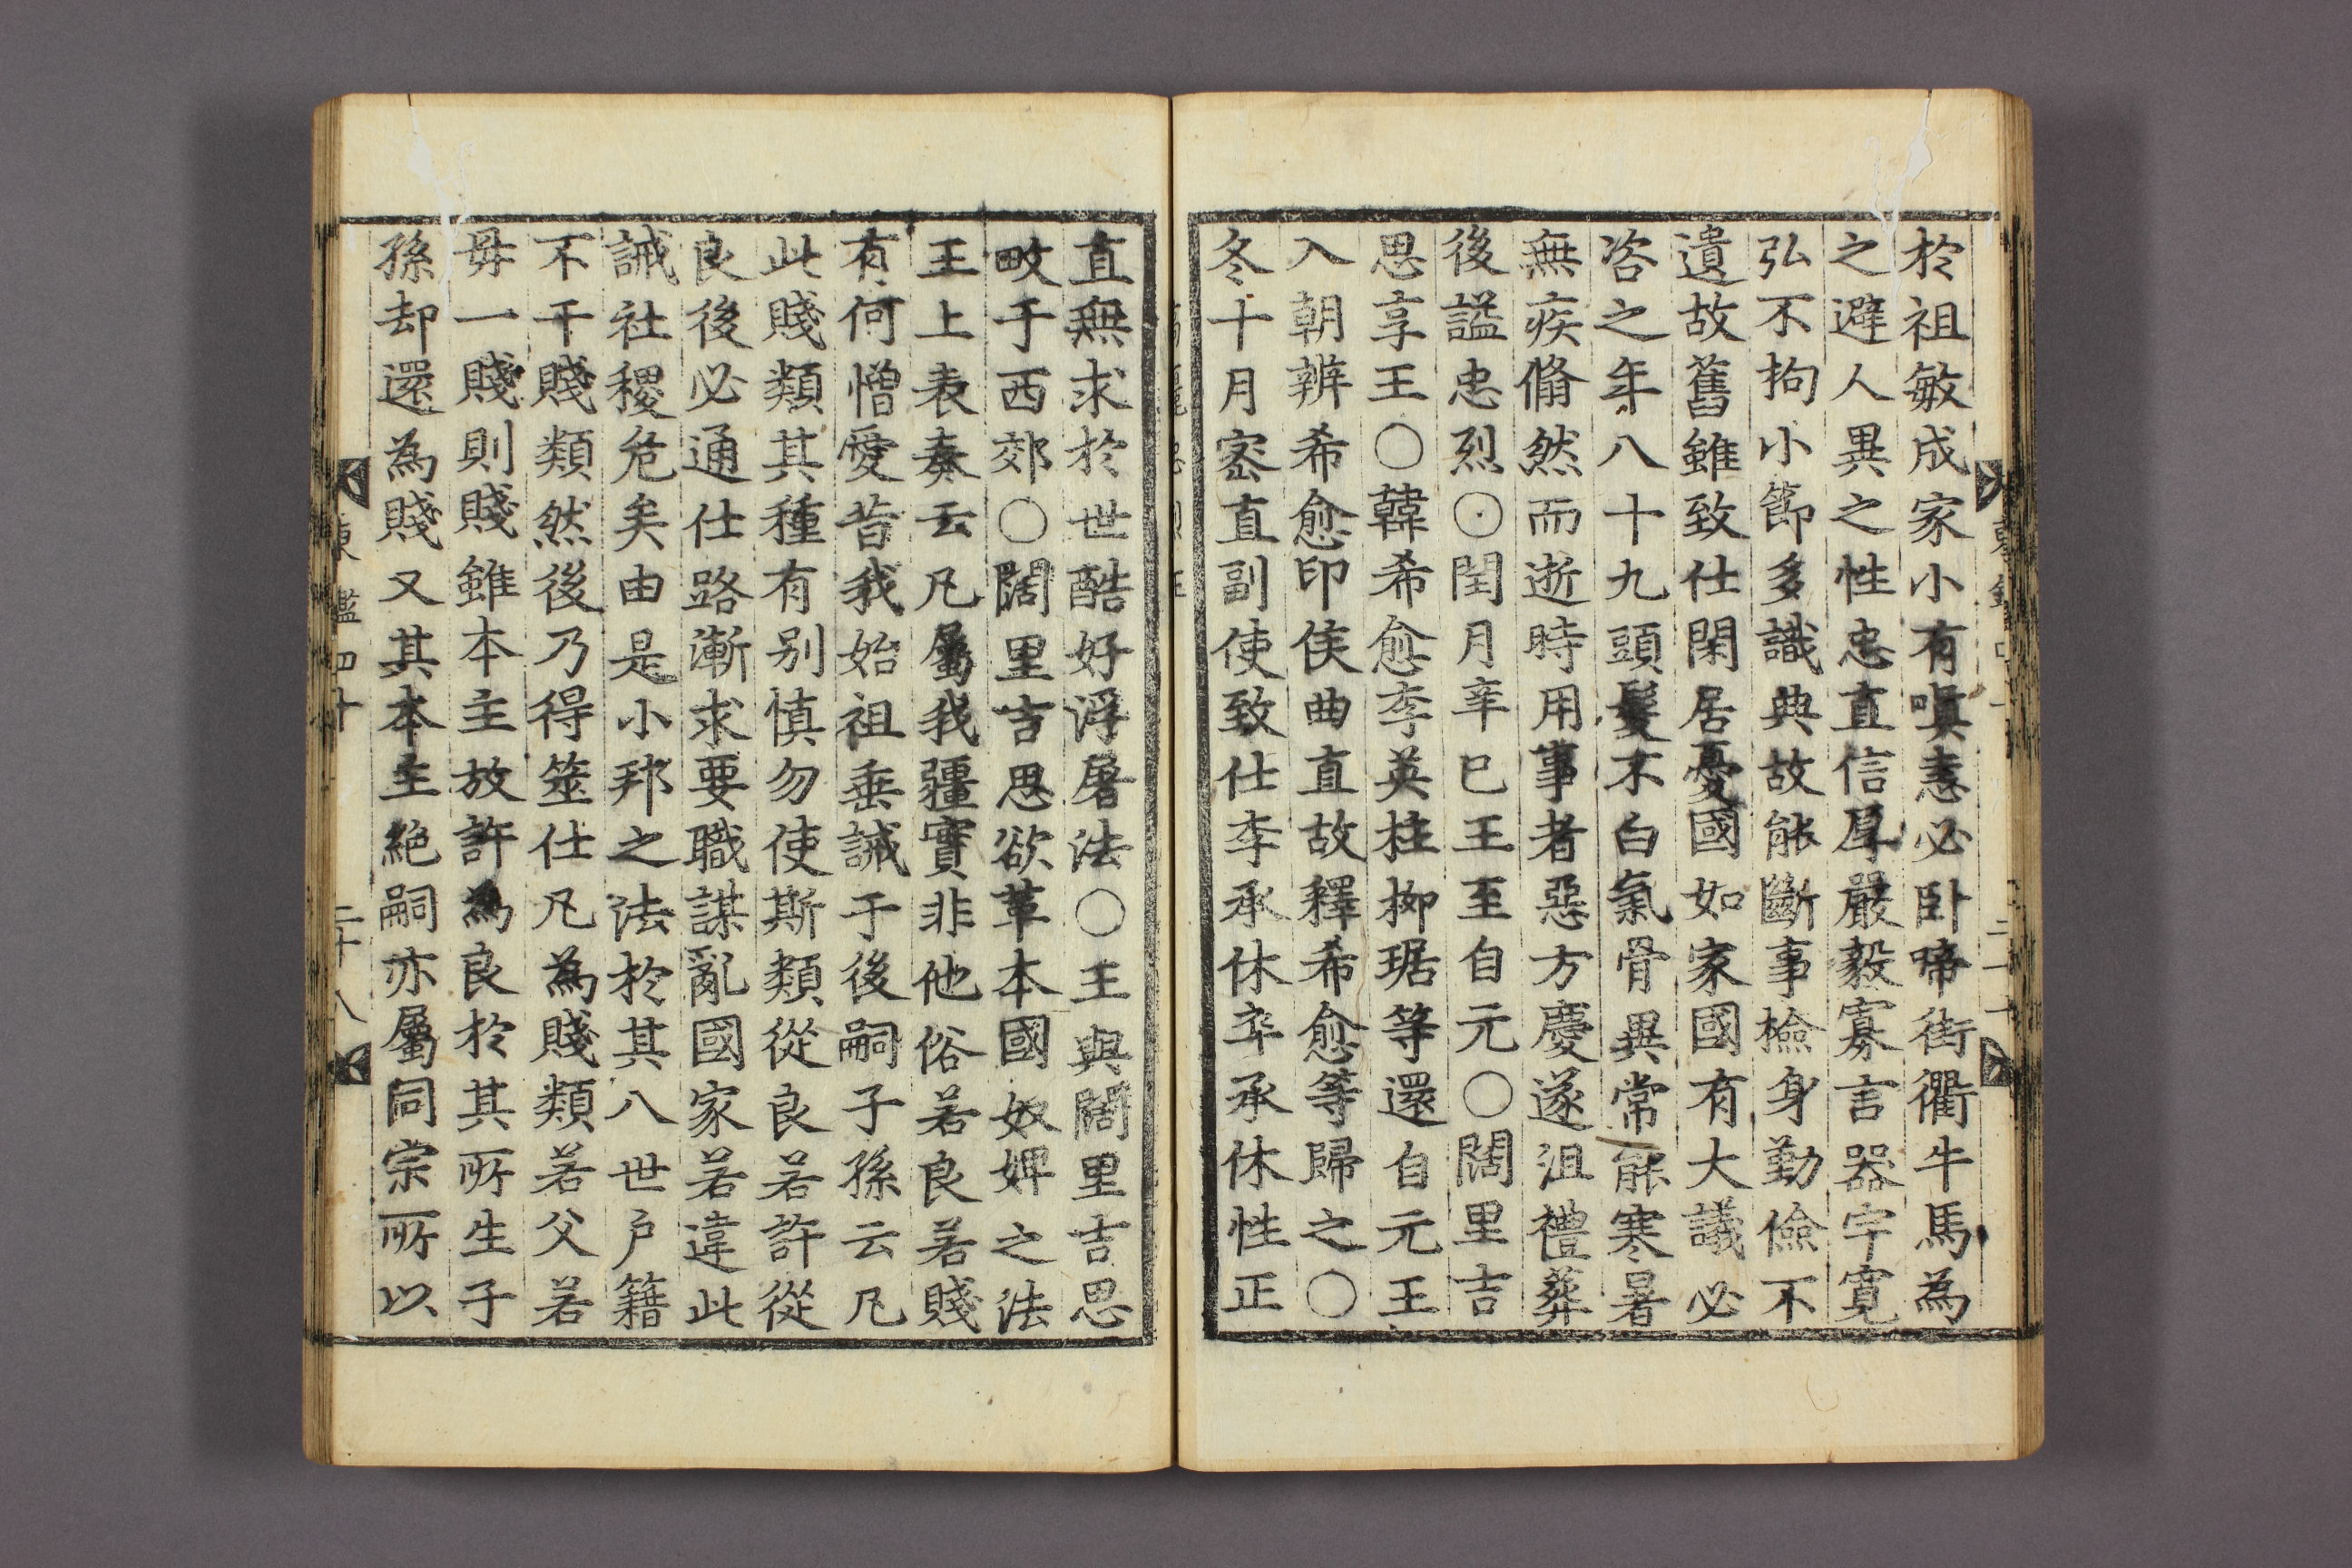 於祖敏成家小有嗔恚必卧啼街衢牛馬為
之避人異之性忠直信厚嚴毅寡言器宇寬
弘不拘小節多識典故能斷事檢身勤儉不
遺故舊雖致仕閑居憂國如家國有大議必
咨之年八十九頭髮不白氣骨異常能寒暑
無疾翛然而逝時用事者惡方慶遂沮禮葬
後謚忠烈○閏月辛巳王至自元○闊里吉
思享王○韓希愈李英柱柳琚等還自元王
入朝辨希愈印侯曲直故釋希愈等歸之○
冬十月密直副使致仕李承休卒承休性正
直無求於世酷好浮屠法○王與闊里吉思
畋于西郊○闊里吉思欲革本國奴婢之法
王上表奏云凡屬我疆實非他俗若良若賤
有何憎愛昔我始祖垂誡于後嗣子孫云凡
此賤類其種有别慎勿使斯類從良若許從
良後必通仕路漸求要職謀亂國家若違此
誡社稷危矣由是小邦之法於其八世户籍
不干賤類然後乃得筮仕凡為賤類若父若
母一賤則賤雖本主放許為良於其所生子
孫却還為賤又其本主絶嗣亦屬同宗所以
東鑑四十 二十八